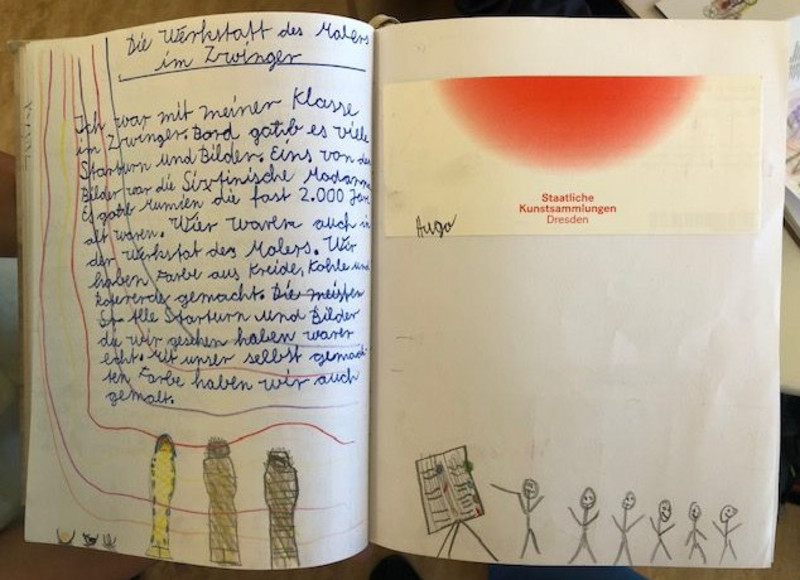 Die Werkstatt des Malers
im Zwinger
Ich war mit meiner Klasse
im Zwinger. Dord gatib es viele
Starturn und Bilder. Eins von den
Bilder war die Sixtinische Madonna
Es gatib Mumien die fast 2.000 Jare
alt waren. Wier waren auch in
der Werkstat des Malers. Wir
haben Farbe aus Kreide, Kohle und
gemacht. Die meisten
Alle Starturn und Bilder
die wir geschen haben waren
echt. Mit unser selbst gemach-
ten Farbe haben wir auch
gemalt.
Staatliche
Kunstsammlungen
Dresden
Hugo